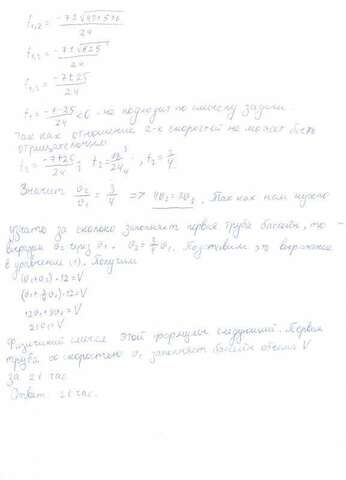 t₁,₂ = (-7±√(49+576))/24
t₁,₂ = (-7±√625)/24
t₁,₂ = (-7±25)/24
t₁ = (-7-25)/24 < 0 - не подходит по смыслу задачи.
Так как отношение 2-х скоростей не может быть
отрицательным
t₂ = (-7+25)/24; t₂ = 18/24 3 4, t₂ = 3/4
Значит υ₂/υ₁ = 3/4 => 4υ₂ = 3υ₁. Так как нам нужно
узнать за сколько заполняет первая труба бассейн, то -
выразим υ₂ через υ₁. υ₂ = 3/4 υ₁. Подставим это выражение
в уравнение (1). Получим
(υ₁+υ₂)·12=V
(υ₁+3/4υ₁)·12=V
12υ₁+9υ₁=V
21υ₁=V
Физический смысл этой формулы следующий. Первая
труба со скоростью υ₁ заполняет бассейн объема V
за 21 час
Ответ: 21 час.